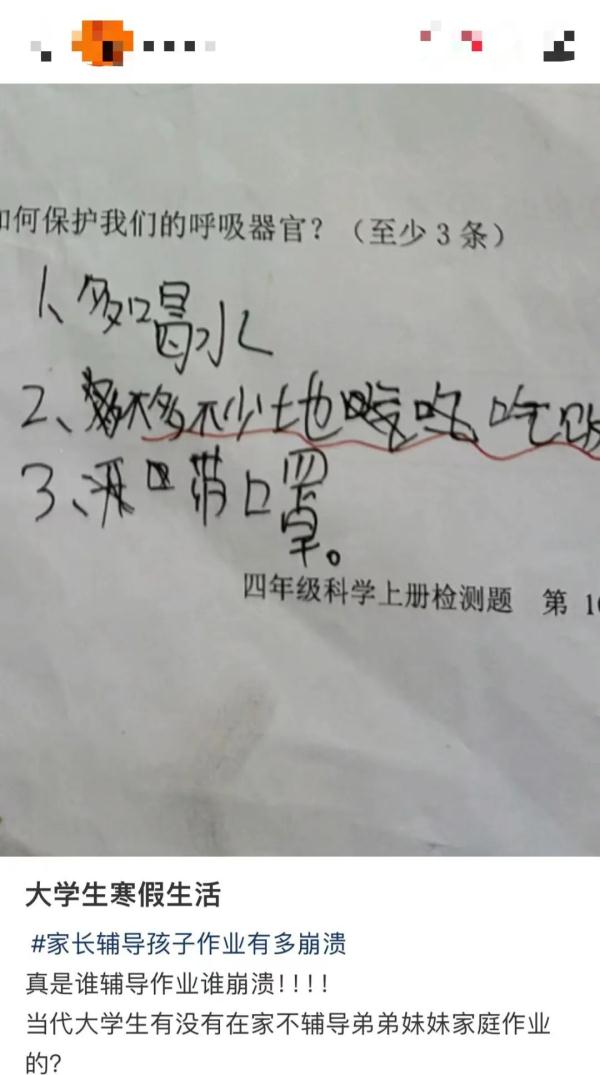 如何保护我们的呼吸器官？（至少3条）
1、多喝水
2、不多不少土地吃饭
3、带口罩。
四年级科学上册检测题 第 1
大学生寒假生活
#家长辅导孩子作业有多崩溃
真是谁辅导作业谁崩溃!!!!
当代大学生有没有在家不辅导弟弟妹妹家庭作业
的?